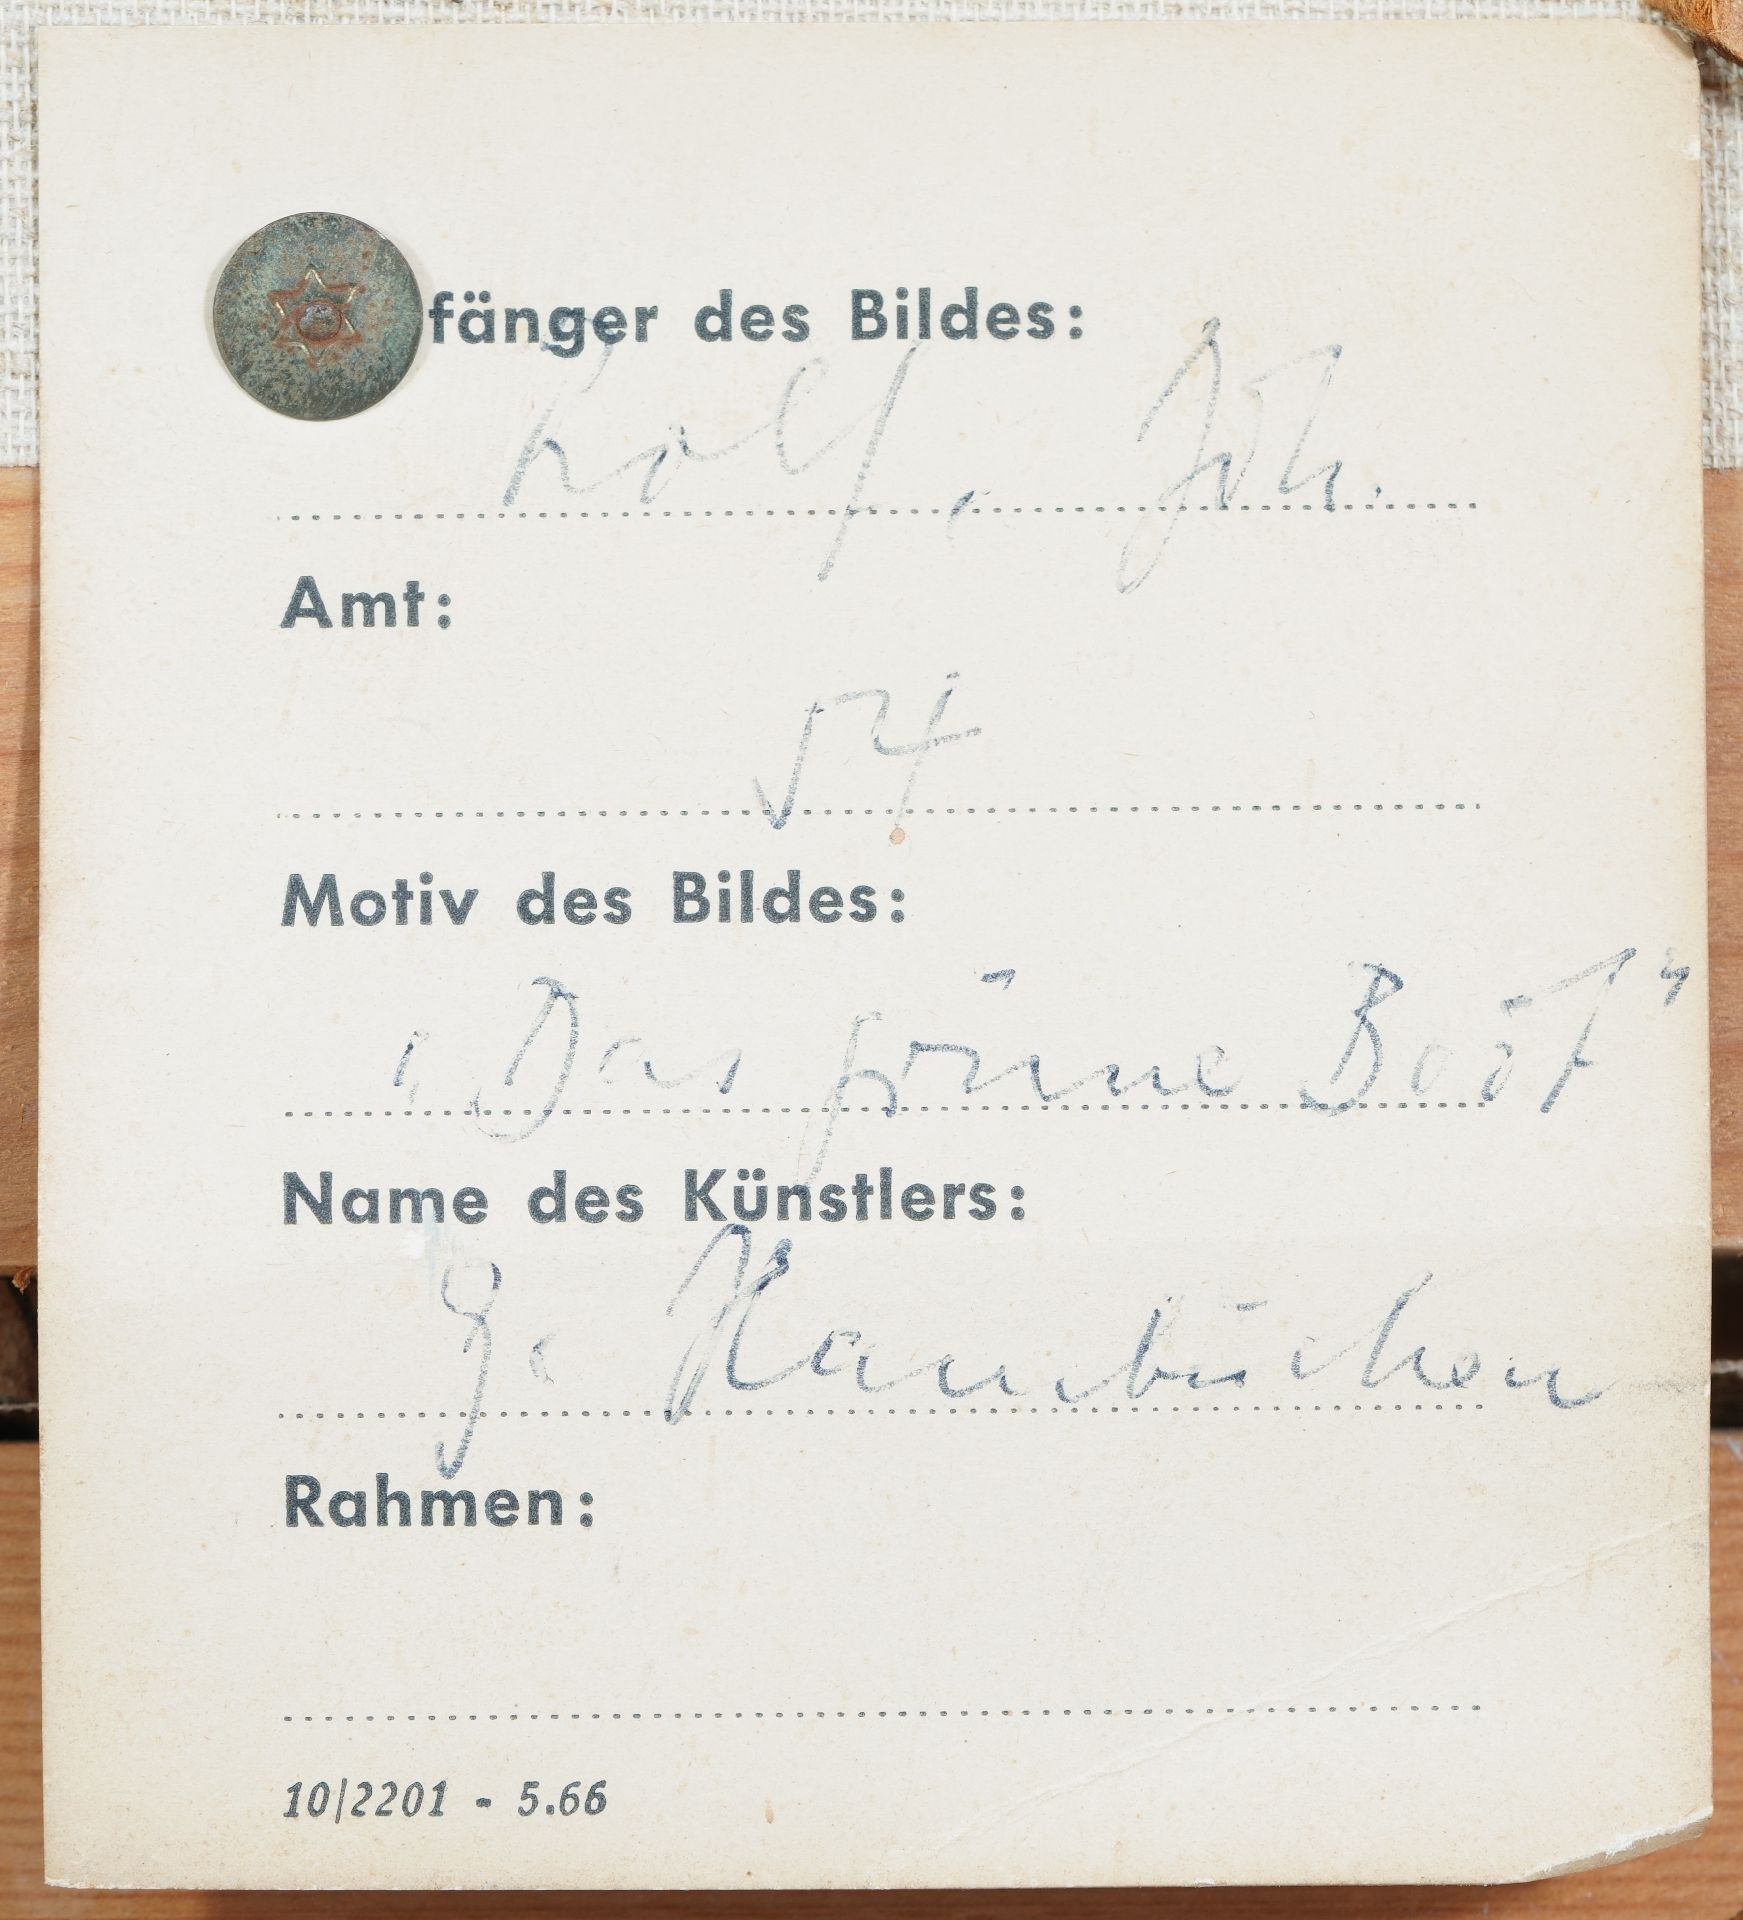 fänger des Bildes:
Kolf, Joh.
Amt:
54
Motiv des Bildes:
„Das grüne Boot"
Name des Künstlers:
G. Hambüchen
Rahmen:
10/2201 - 5.66